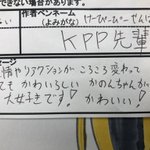 できない場合があります。
作者ペンネーム
(よみがな)
けーぴーぴーせんぱ
KPP先輩
メージ
情やリアクションが ころころ変わって
ても かわいらしい かのんちゃんが
大好きです! かわいい!